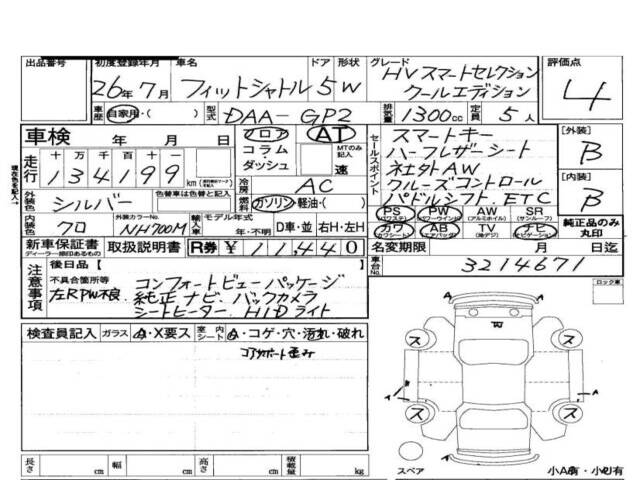 出品番号 初度登録年月 車名 ドア 形状 グレード 評価点
26年7月 フィットシャトル 5 W HVスマートセレクション
クールエディション
4
車歴 自家用・( ) 型式 DAA-GP2 排気量 1300cc 定員 5人
車検 年 月 日 フロア AT セールスポイント スマートキー 【外装】
コラム・ MTのみ記入 ハーフレザーシート B
ダッシュ 速 社外AW
走行 十 万 千 百 十 一
134199 km
冷房 AC クルーズコントロール 【内装】
外装色 シルバー 色替車は色替と記入 燃料 ガソリン・軽油・( ) パドルシフト ETC B
内装色 クロ 外装カラーNo. NH700M 輸入車 モデル年式 年・不明 D車・並 右H・左H
PS PW AW SR
(パワステ) (パワーウインド) (アルミホイル) (サンルーフ)
カワ AB TV ナビ
(カワシート) (エアバッグ) (地デジ) (ナビゲーション)
純正品のみ丸印
現在色を記入
新車保証書 取扱説明書 R券 ¥11,440 名変期限 月 日迄
ディーラー捺印あるもの
車台No. 3214671
注意事項 後日品【 】
不具合箇所等 コンフォートビューパッケージ
左RPW不良 純正ナビ バックカメラ
シートヒーター HIDライト
ロック車
検査員記入 ガラス A・X要ス 室内シート A・コゲ・穴・汚れ・破れ
コアサポート歪み
ス ス
A A
ス ス
スペア 小A有・小U有
長さ cm 幅 cm 高さ cm 積載量 kg